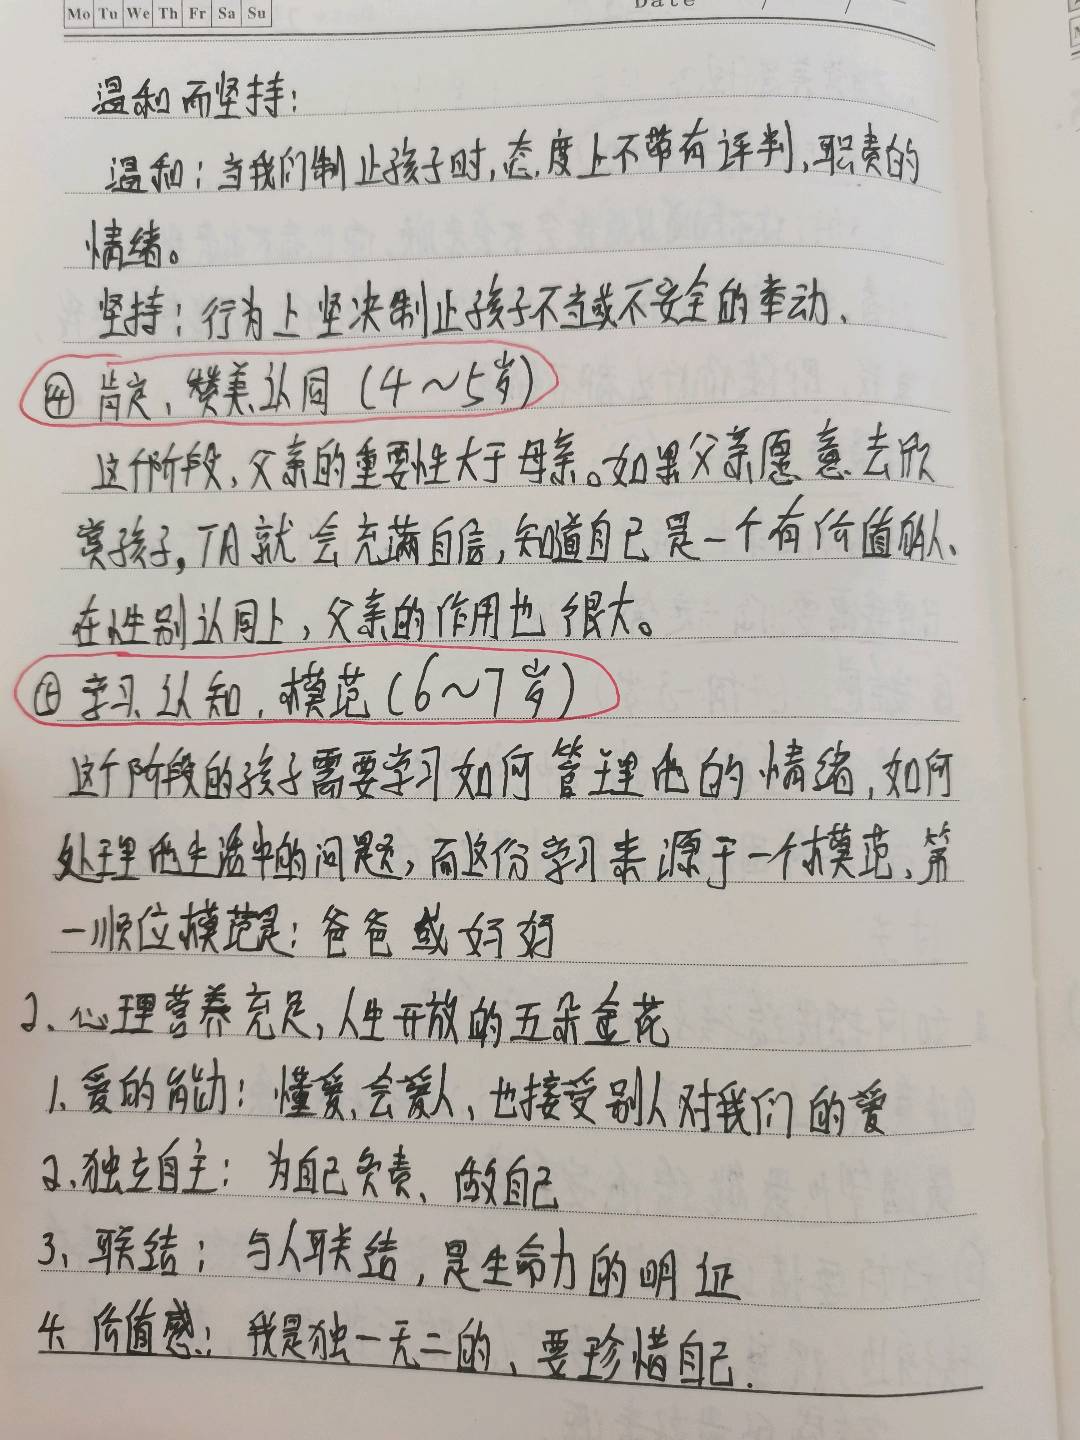 Mo Tu We Th Fr Sa Su
Date / /
温和而坚持：
温和：当我们制止孩子时，态度上不带有评判，职责的
情绪。
坚持：行为上坚决制止孩子不当或不安全的举动、
④ 肯定、赞美、认同（4～5岁）
这个阶段，父亲的重要性大于母亲。如果父亲愿意去欣
赏孩子，TA就会充满自信，知道自己是一个有价值的人、
在性别认同上，父亲的作用也很大。
⑤ 学习、认知、模范（6～7岁）
这个阶段的孩子需要学习如何管理他的情绪，如何
处理他生活中的问题，而这份学习来源于一个模范、第
一顺位模范是：爸爸或妈妈
2、心理营养充足，人生开放的五朵金花
1、爱的能力：懂爱、会爱人、也接受别人对我们的爱
2、独立自主：为自己负责、做自己
3、联结：与人联结，是生命力的明证
4、价值感：我是独一无二的、要珍惜自己.